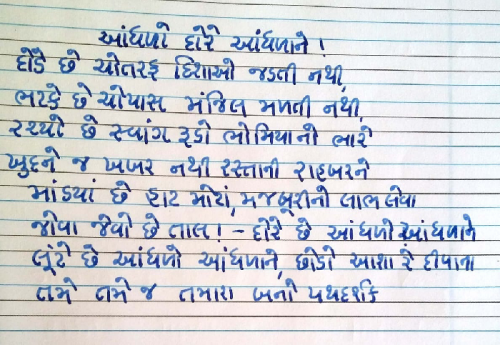 આંધળો દોરે આંધળાને!
દોડે છે ચોતરફ દિશાઓ જડતી નથી,
ભટકે છે ચોપાસ મંજિલ મળતી નથી,
રચ્યો છે સ્વાંગ રૂડો ભોમિયાનો ભારે
ખુદને જ ખબર નથી રસ્તાની રાહબરને
માંડયાં છે હાટ મોટાં, મજબૂરીનો લાભ લેવા
જોવા જેવો છે તાલ! - દોરે છે આંધળો આંધળાને
લૂંટે છે આંધળો આંધળાને, છોડો આશા રે દીવાના
તમે તમે જ તમારા બનો પથદર્શક